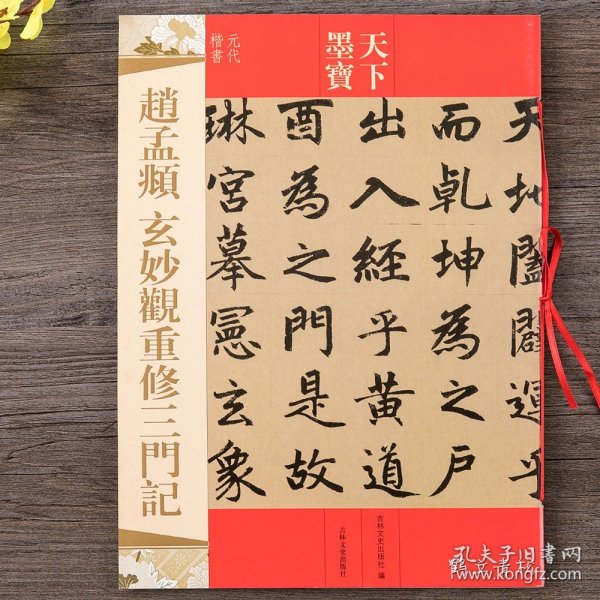 天下
墨寶
元代
楷書
趙孟頫 玄妙觀重修三門記
天地闔闢運乎
而乹坤為之戶
出入經乎黃道
酉為之門是故
琳宮摹憲玄象
吉林文史出版社 編
吉林文史出版社
孔夫子旧書网
www.kongfz.com